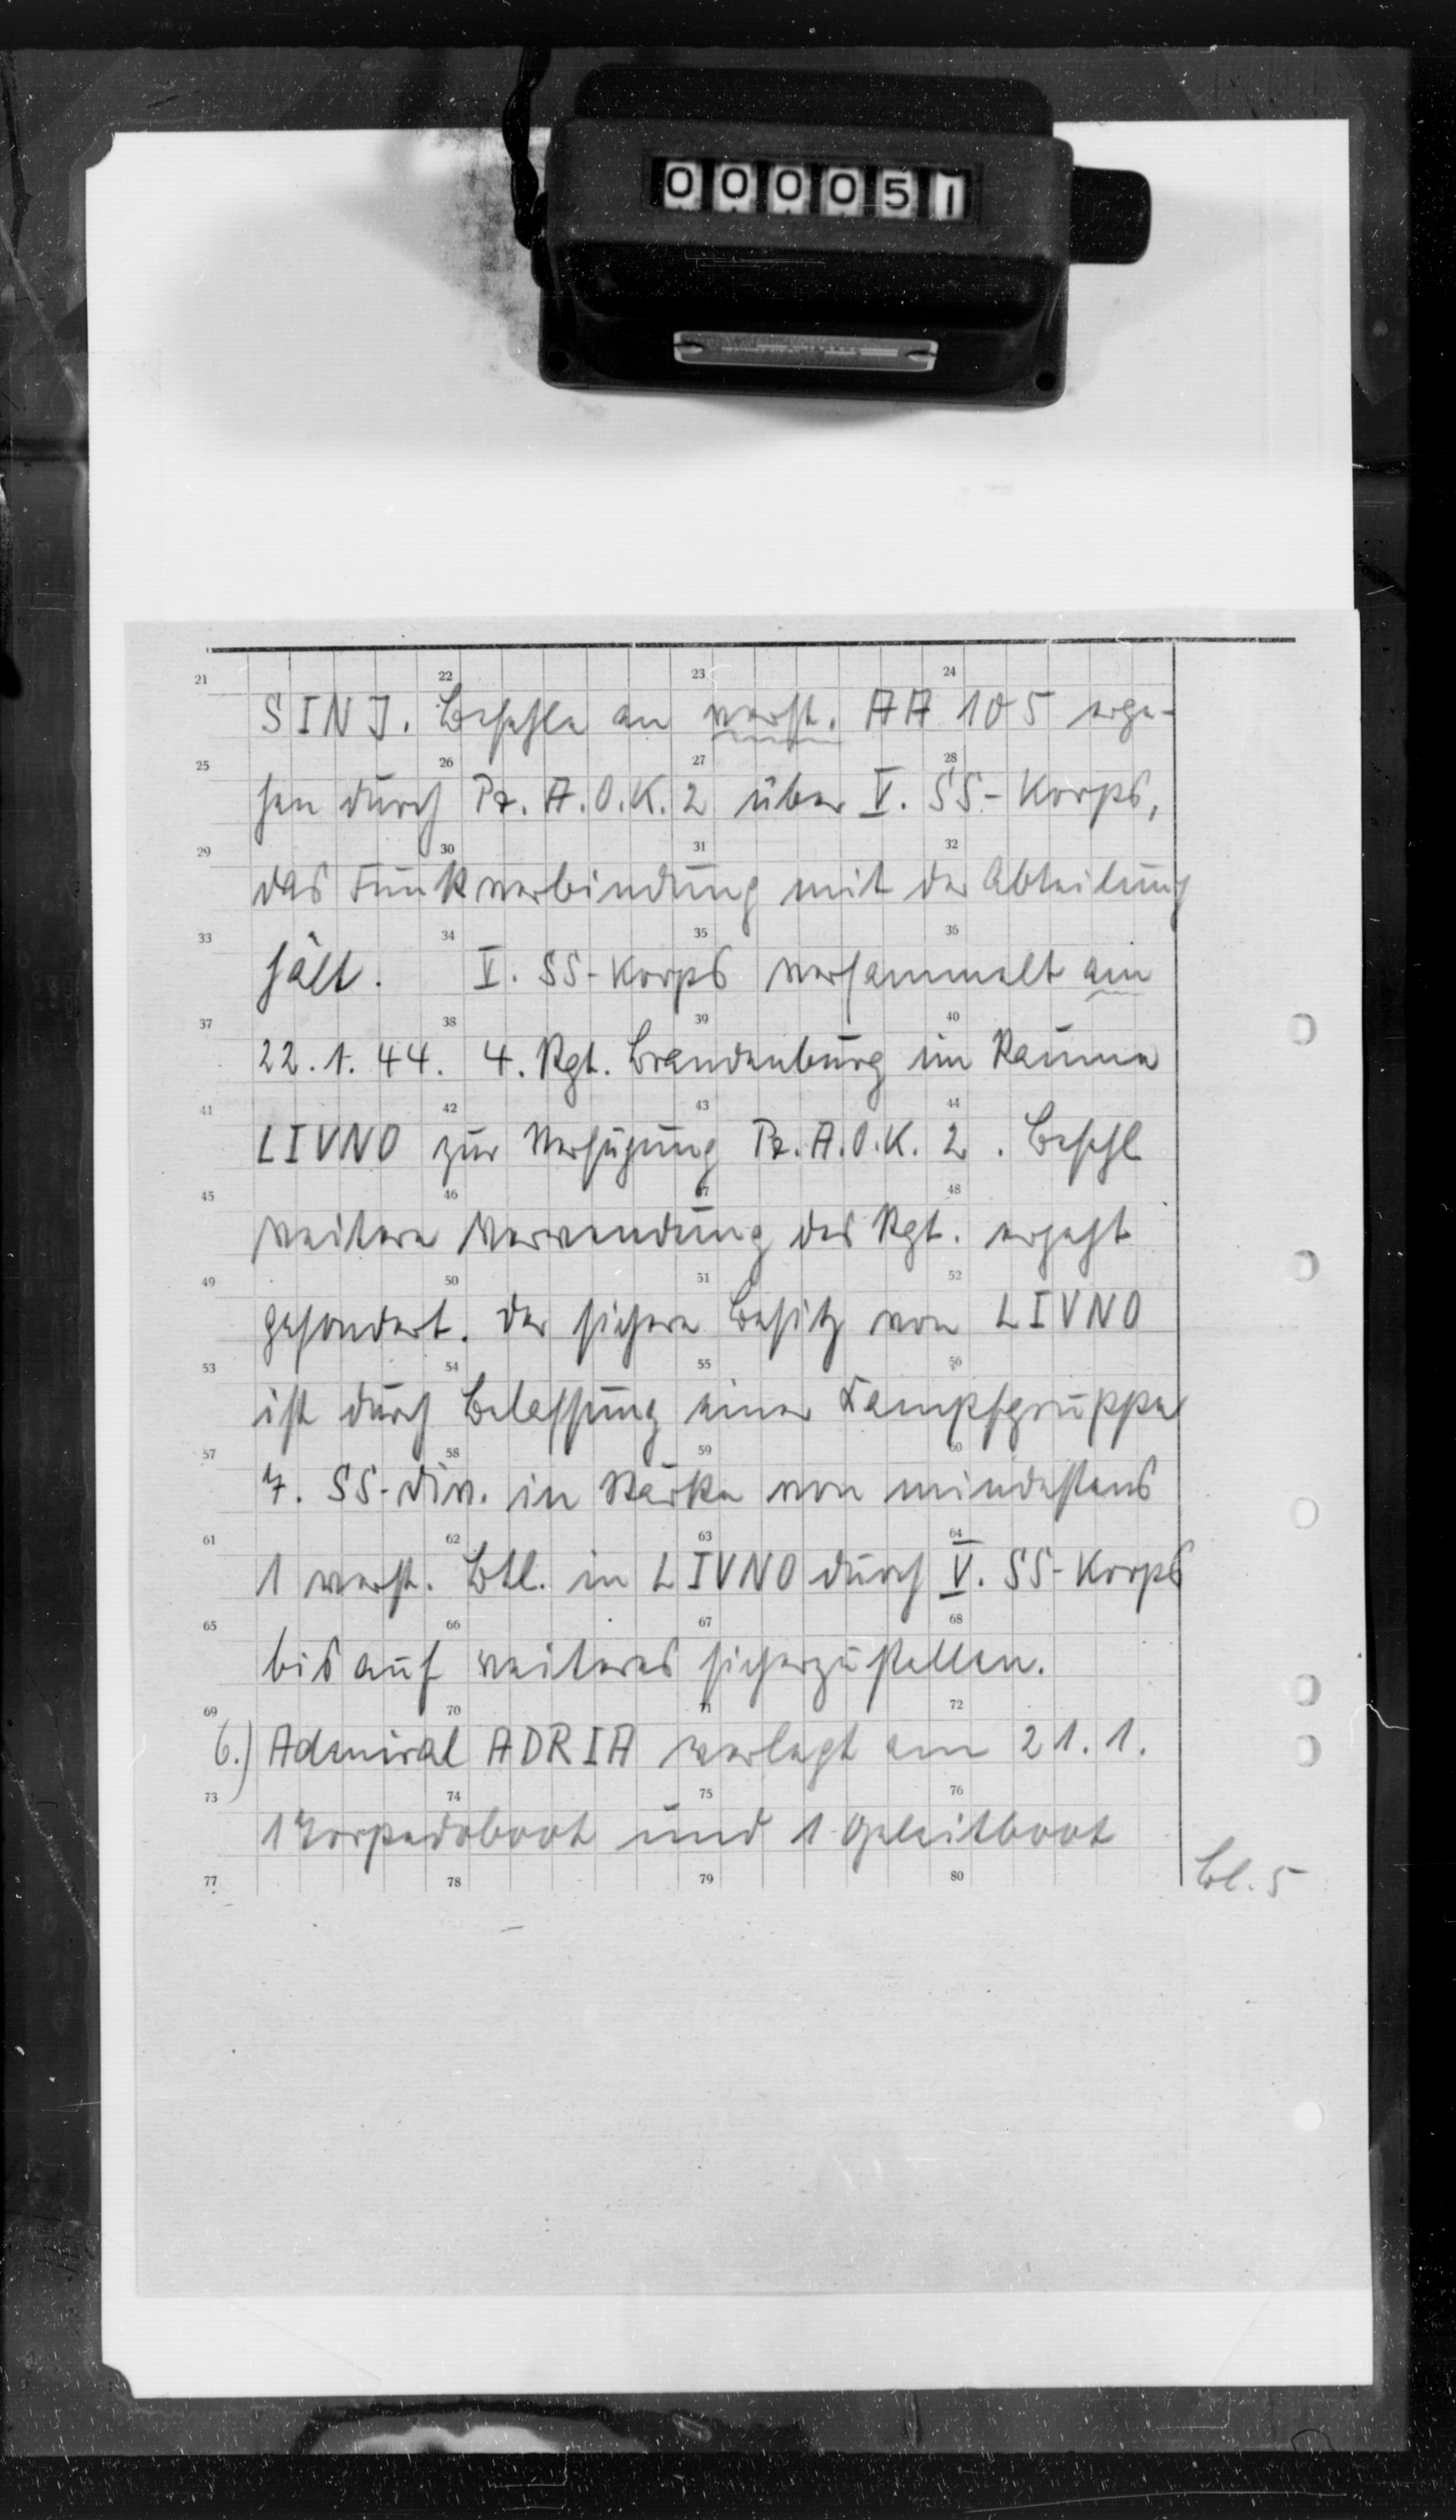 000051
21 22 23 24
SINJ. Befehle an verst. AA 105 erge-
25 26 27 28
hen durch Pz. A.O.K. 2 über V. SS-Korps,
29 30 31 32
das Funkverbindung mit der Abteilung
33 34 35 36
hält. V. SS-Korps versammelt am
37 38 39 40
22.1.44. 4. Rgt. Brandenburg im Raume
41 42 43 44
LIVNO zur Verfügung Pz. A.O.K. 2. Befehl
45 46 47 48
weitere Verwendung des Rgt. ergeht
49 50 51 52
gesondert. Der sichere Besitz von LIVNO
53 54 55 56
ist durch Belassung einer Kampfgruppe
57 58 59 60
7. SS-Div. in Stärke von mindestens
61 62 63 64
1 verst. Btl. in LIVNO durch V. SS-Korps
65 66 67 68
bis auf weiteres sicherzustellen.
69 70 71 72
6.) Admiral ADRIA verlegt am 21.1.
73 74 75 76
1 Torpedoboot und 1 Geleitboot
77 78 79 80
Bl. 5